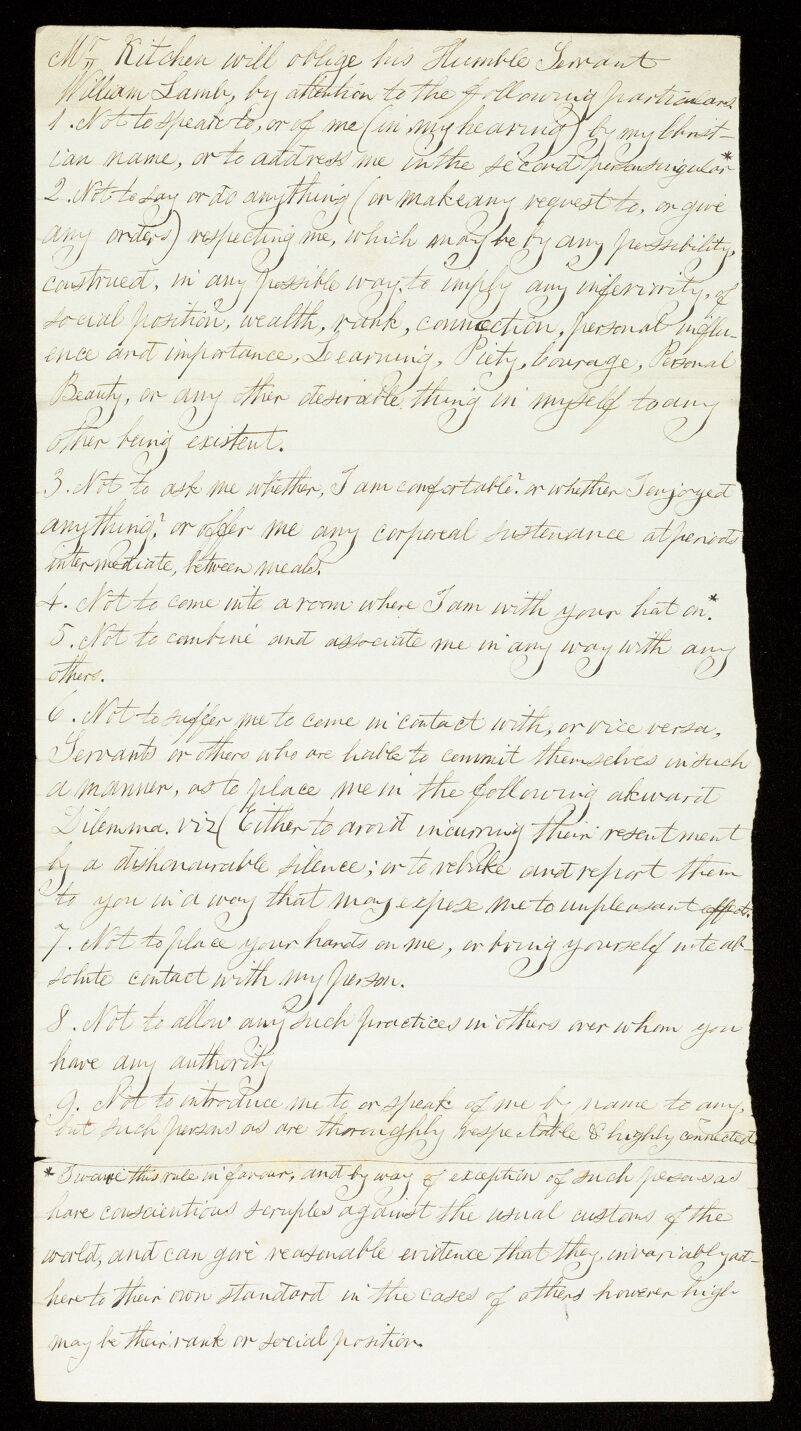 Mr Kitchen will oblige his Humble Servant
William Lamb, by attention to the following particulars
1. Not to speak to, or of me (in my hearing) by my Christ-
ian name, or to address me in the second person singular*
2. Not to say or do anything (or make any request to, or give
any orders) respecting me, which may be by any possibility,
construed, in any possible way, to imply any inferiority, of
social position, wealth, rank, connection, personal influ-
ence and importance, Learning, Piety, Courage, Personal
Beauty, or any other desirable thing in myself to any
other being existent.
3. Not to ask me whether, I am comfortable? or whether I enjoyed
anything? or offer me any corporeal sustenance at periods
intermediate, between meals.
4. Not to come into a room where I am with your hat on.*
5. Not to combine and associate me in any way with any
others.
6. Not to suffer me to come in contact with, or vice versa,
Servants or others who are liable to commit themselves in such
a manner, as to place me in the following akward
Dilemma. viz (Either to avoid incurring their resentment
by a dishonourable silence; or to rebuke and report them
to you in a way that may expose me to unpleasant effects.
7. Not to place your hands on me, or bring yourself into ab-
solute contact with my person.
8. Not to allow any such practices in others over whom you
have any authority
9. Not to introduce me to or speak of me by name to any,
but such persons as are thoroughly respectable & highly connected
* I waive this rule in favour, and by way of exception of such persons as
have conscientious scruples against the usual customs of the
world, and can give reasonable evidence that they invariably ad-
here to their own standard in the cases of others however high
may be their rank or social position.